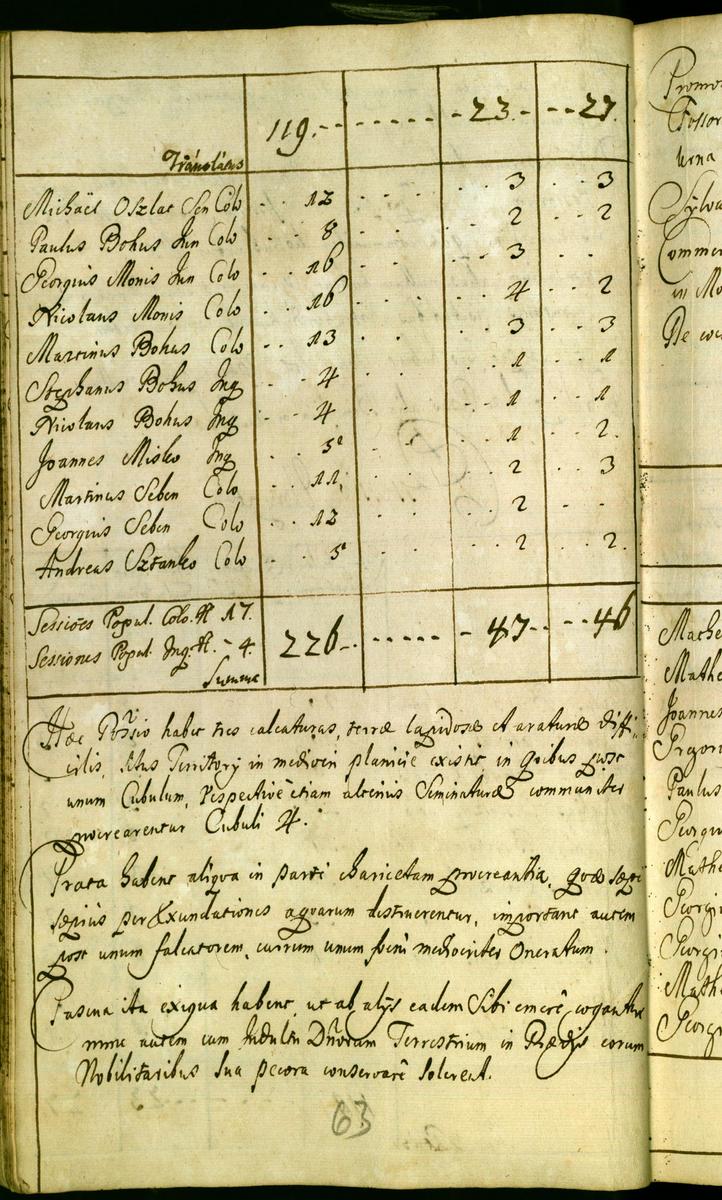 119. - - - - - - - - 23. - - 27.
Translatus
Michäel Oszlat Sen Colo 12 3 3
Paulus Bohus Jun Colo 8 2 2
Georgius Monis Jun Colo 16 3
Nicolaus Monis Colo 16 4 2
Martinus Bohus Colo 13 3 3
Stephanus Bohus Inq 4 1 1
Nicolaus Bohus Inq 4 1 1
Joannes Misko Inq 5 1 2
Martinus Seben Colo 11 2 3
Georgius Seben Colo 12 2
Andreas Sztanko Colo 5 2 2
Sessiões Popul. Colo. 17.
Sessiones Popul. Inq. - 4.
Summa 226 - - - - - - 47 - - - - 46
Hæc Possio habet tres calcaturas, terræ lapidosæ et araturæ diffi-
cilis, situs Territory in mediocri planicie existit in qvibus post
unum Cubulum, respectivè etiam alterius Seminaturæ communiter
procrearentur Cubuli 4.
Prata habent aliqva in parti charicetam procreantia, qvæ sæpi
sæpius per Exundationes aqvarum destruerentur, important autem
post unum falcatorem, currum unum fæni mediocriter Oneratum.
Pascua ita exiqua habent, ut ab alijs eadem Sibi emerê cogantur
nunc autem cum Indultu Dnõrum Terrestrium in Prædijs eorum
Nobilitaribus Sua pecora conservarê Solerent.
63
Promo
Fossor
Urna
Sylva
Commer
in Mo
Mathe
Joannes
Gregori
Paulus
Georgiu
Mathe
Georgi
Georgi
Mathe
Georg